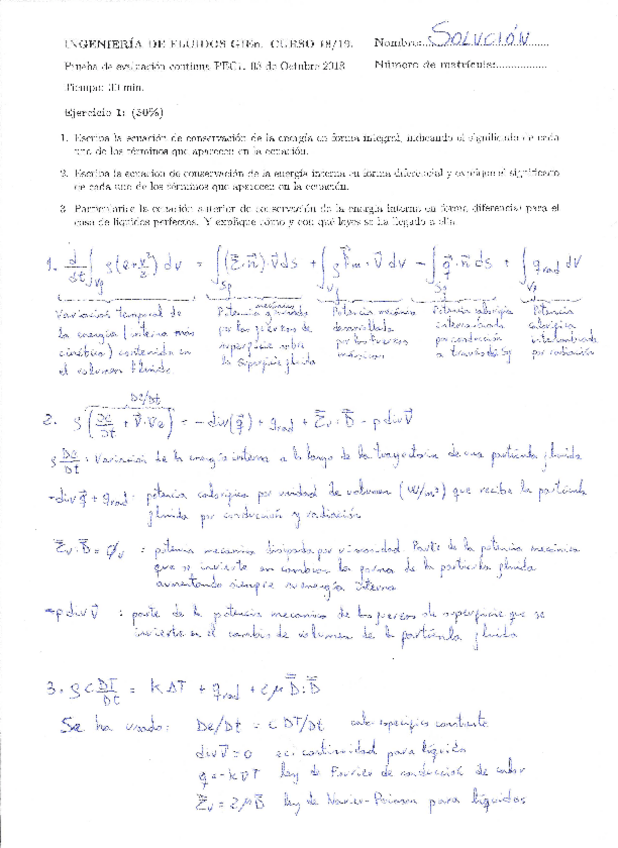 INGENIERÍA DE FLUIDOS GIEn. CURSO 18/19. Nombre:...SOLUCIÓN...
Prueba de evaluación continua PEC1. 03 de Octubre 2018 Número de matrícula:.................
Tiempo: 30 min.
Ejercicio 1: (50%)
1. Escriba la ecuación de conservación de la energía en forma integral, indicando el significado de cada
uno de los términos que aparecen en la ecuación.
2. Escriba la ecuación de conservación de la energía interna en forma diferencial y explique el significado
de cada uno de los términos que aparecen en la ecuación.
3. Particularice la ecuación anterior de conservación de la energía interna en forma diferencial para el
caso de líquidos perfectos. Y explique cómo y con qué leyes se ha llegado a ella.
1. d/dt ∫_Vf ρ(e+v²/2) dv = ∫_Sf (Σ̿·n̄)·v̄ ds + ∫_Vf ρ f̄m·v̄ dv − ∫_Sf q̄·n̄ ds + ∫_Vf q_rad dV
Variación temporal de
la energía (interna más
cinética) contenida en
el volumen fluido.
Potencia mecánica
por las fuerzas de
superficie sobre
la superficie fluida
Potencia mecánica
desarrollada
por las fuerzas
másicas
Potencia calorífica
intercambiada
por conducción
a través de Sf
Potencia
calorífica
intercambiada
por radiación
De/Dt
2. ρ(∂e/∂t + v̄·∇e) = −div(q̄) + q_rad + Σ̿v:D̿ − p div v̄
ρ De/Dt : Variación de la energía interna a lo largo de la trayectoria de una partícula fluida
−div q̄ + q_rad : potencia calorífica por unidad de volumen (W/m³) que recibe la partícula
fluida por conducción y radiación
Σ̿v:D̿ = ϕv : potencia mecánica disipada por viscosidad. Parte de la potencia mecánica
que se invierte en cambiar la forma de la partícula fluida
aumentando siempre su energía interna
−p div v̄ : parte de la potencia mecánica de las fuerzas de superficie que se
invierte en el cambio de volumen de la partícula fluida
3. ρc DT/Dt = k ΔT + q_rad + 2μ D̿:D̿
Se ha usado: De/Dt = c DT/Dt calor específico constante
div v̄ = 0 ec. continuidad para líquido
q = −k∇T ley de Fourier de conducción de calor
Σ̿v = 2μD̿ ley de Navier-Poisson para líquidos